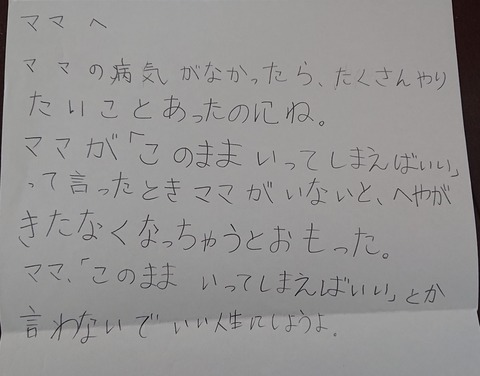 ママへ
ママの病気がなかったら、たくさんやり
たいことあったのにね。
ママが「このままいってしまえばいい」
って言ったときママがいないと、へやが
きたなくなっちゃうとおもった。
ママ、「このまま いってしまえばいい」とか
言わないでいい人生にしようよ。